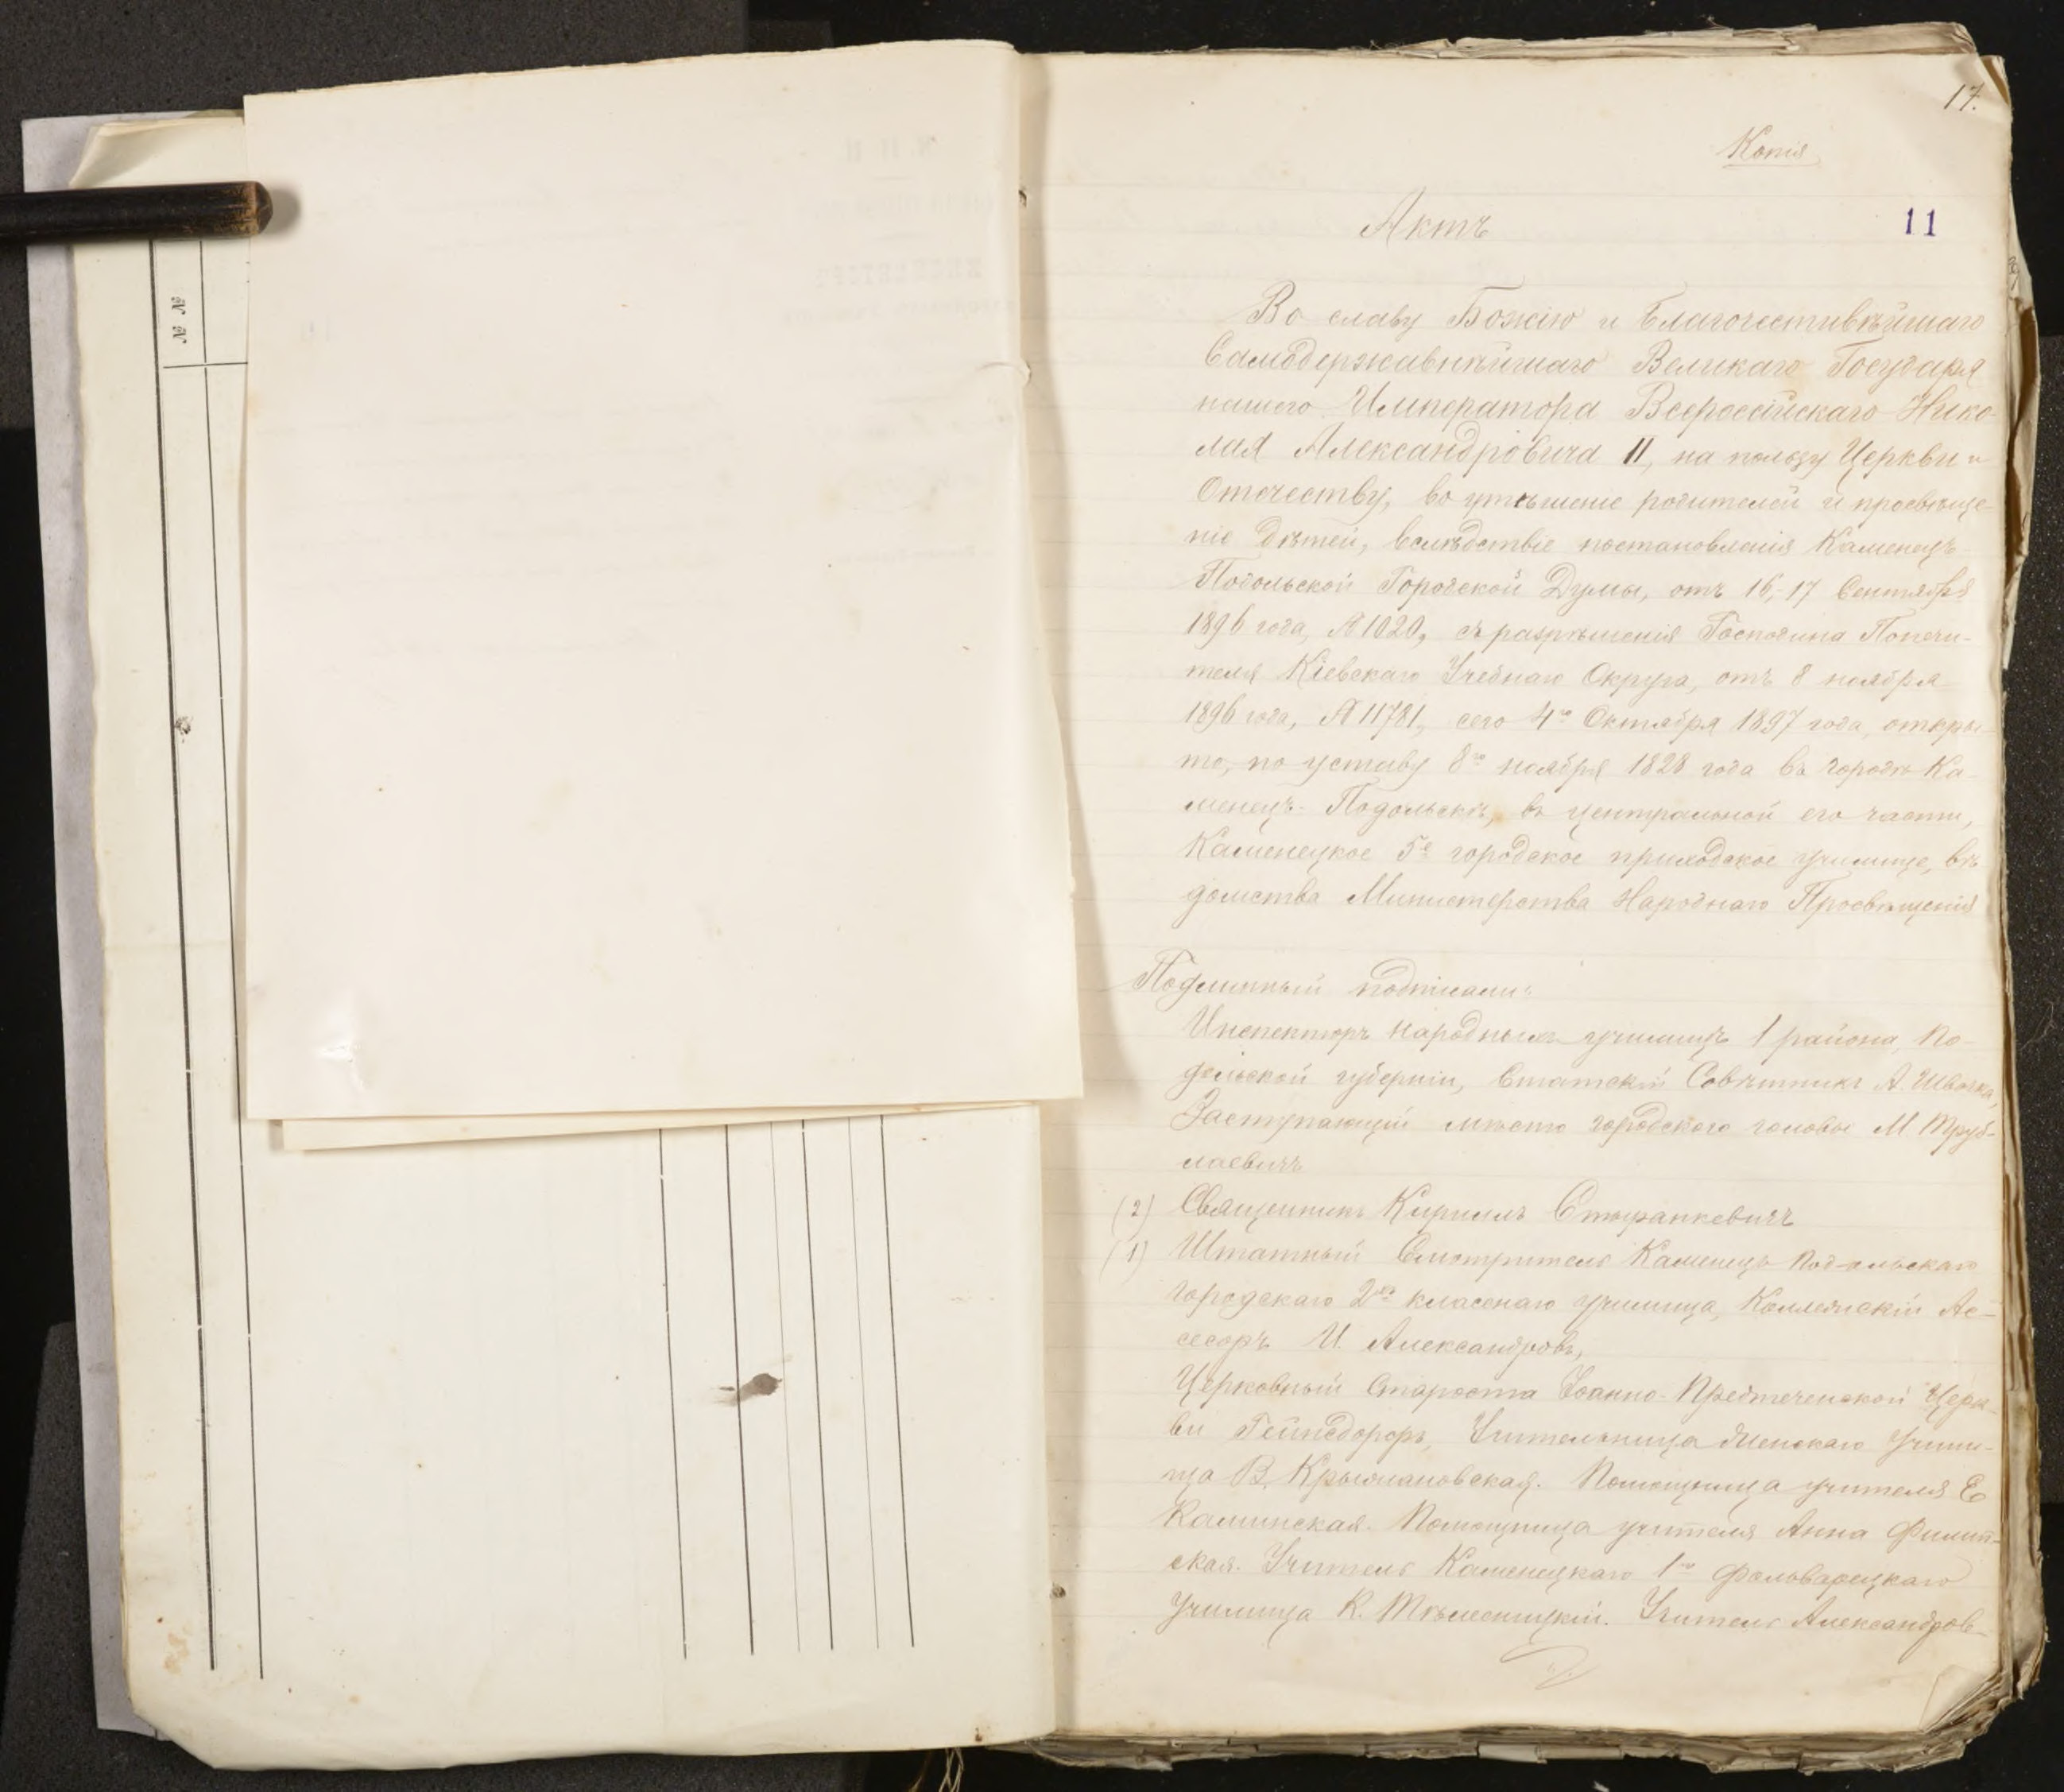 № №
17.
Копія
Актъ
11
Во славу Божію и Благочестивѣйшаго
Самодержавнѣйшаго Великаго Государя
нашего Императора Всероссійскаго Нико-
лая Александровича II, на пользу Церкви и
Отечеству, во утѣшеніе родителей и просвѣще-
ніе дѣтей, вслѣдствіе постановленія Каменецъ-
Подольской Городской Думы, отъ 16-17 Сентября
1896 года, № 1020, съ разрѣшенія Господина Попечи-
теля Кіевскаго Учебнаго Округа, отъ 8 ноября
1896 года, № 11781, сего 4го Октября 1897 года, откры-
то, по уставу 8го ноября 1828 года въ городѣ Ка-
менецъ-Подольскѣ, въ центральной его части,
Каменецкое 5е городское приходское училище, вѣ-
домства Министерства Народнаго Просвѣщенія
Подлинный подписали:
Инспекторъ народныхъ училищъ 1 района, По-
дольской губерніи, Статскій Совѣтникъ А.
Заступающій мѣсто городского головы М. Труб-
лаевичъ
(2) Священникъ Кириллъ Стыранкевичъ
(1) Штатный Смотритель Каменецъ Подольскаго
городскаго 2хъ класснаго училища, Коллежскій Ас-
сесоръ И. Александровъ,
Церковный Староста Іоанно-Предтеченской Церк-
ви Гейнсдорфъ, Учительница Женскаго Учили-
ща В. Крыжановская. Помощница учителя Е
Калинская. Помощница учителя Анна Филип-
ская. Учитель Каменецкаго 1го Фольварецкаго
Училища К. Учитель Александров-